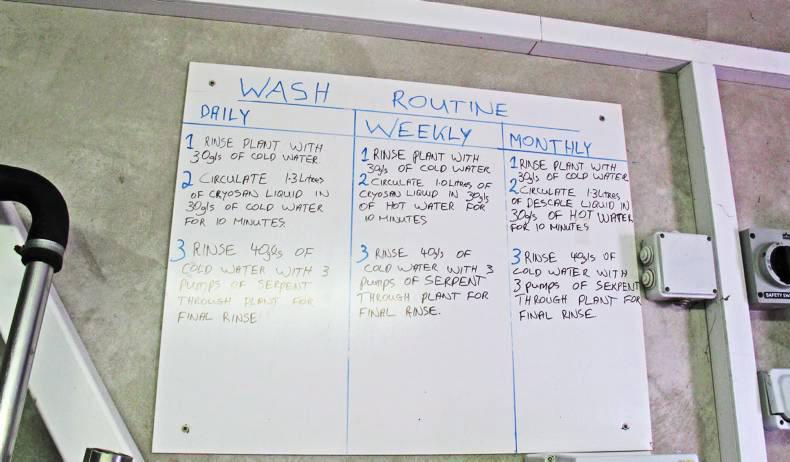 WASH ROUTINE
DAILY
1 RINSE PLANT WITH
30gls OF COLD WATER
2 CIRCULATE 1.3 Litres
OF CRYOSAN LIQUID IN
30gls OF COLD WATER
FOR 10 MINUTES.
3 RINSE 40gls OF
COLD WATER WITH 3
PUMPS OF SERPENT
THROUGH PLANT FOR
FINAL RINSE
WEEKLY
1 RINSE PLANT WITH
30gls OF COLD WATER
2 CIRCULATE 1.0 Litres OF
CRYOSAN LIQUID IN 30gls
OF HOT WATER FOR
10 MINUTES
3 RINSE 40gls OF
COLD WATER WITH 3
PUMPS OF SERPENT
THROUGH PLANT FOR
FINAL RINSE.
MONTHLY
1 RINSE PLANT WITH
30gls OF COLD WATER
2 CIRCULATE 1.3 Litres
OF DESCALE LIQUID IN
30gls OF HOT WATER
FOR 10 MINUTES
3 RINSE 40gls OF
COLD WATER WITH
3 PUMPS OF SERPENT
THROUGH PLANT FOR
FINAL RINSE
SAFETY